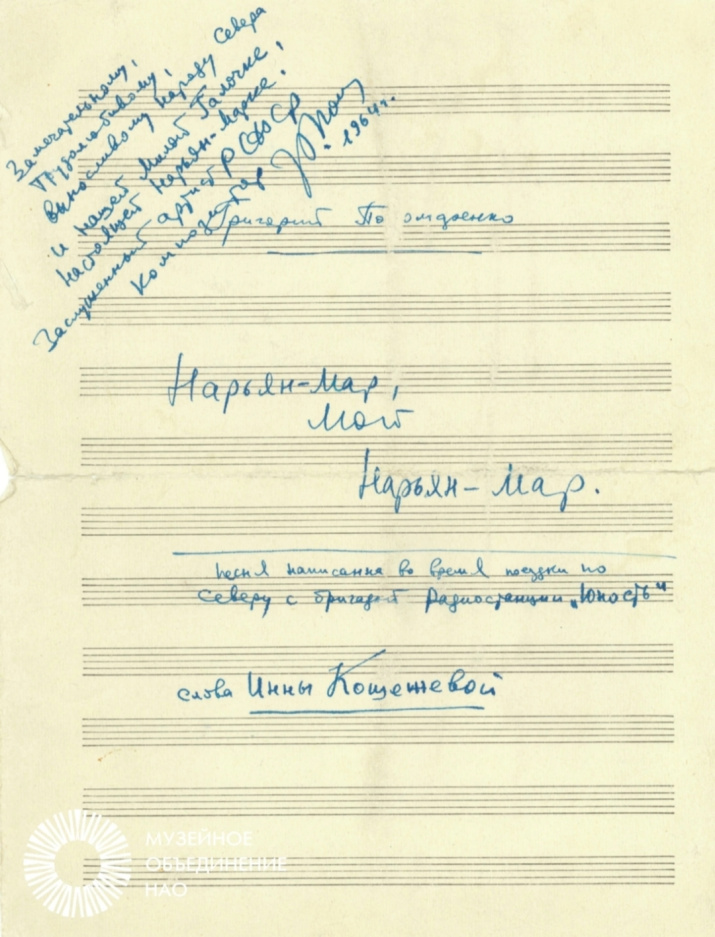 Замечательному,
Трудолюбивому,
выносливому народу Севера
и нашей милой Галочке,
настоящей Нарьян-Марке!
Заслуженный артист РСФСР
композитор
1964 г.
Григорий Пономаренко
Нарьян-Мар,
мой
Нарьян-Мар.
песня написанна во время поездки по
Северу с бригадой Радиостанции „Юность"
слова Инны Кошежевой
МУЗЕЙНОЕ
ОБЪЕДИНЕНИЕ
НАО